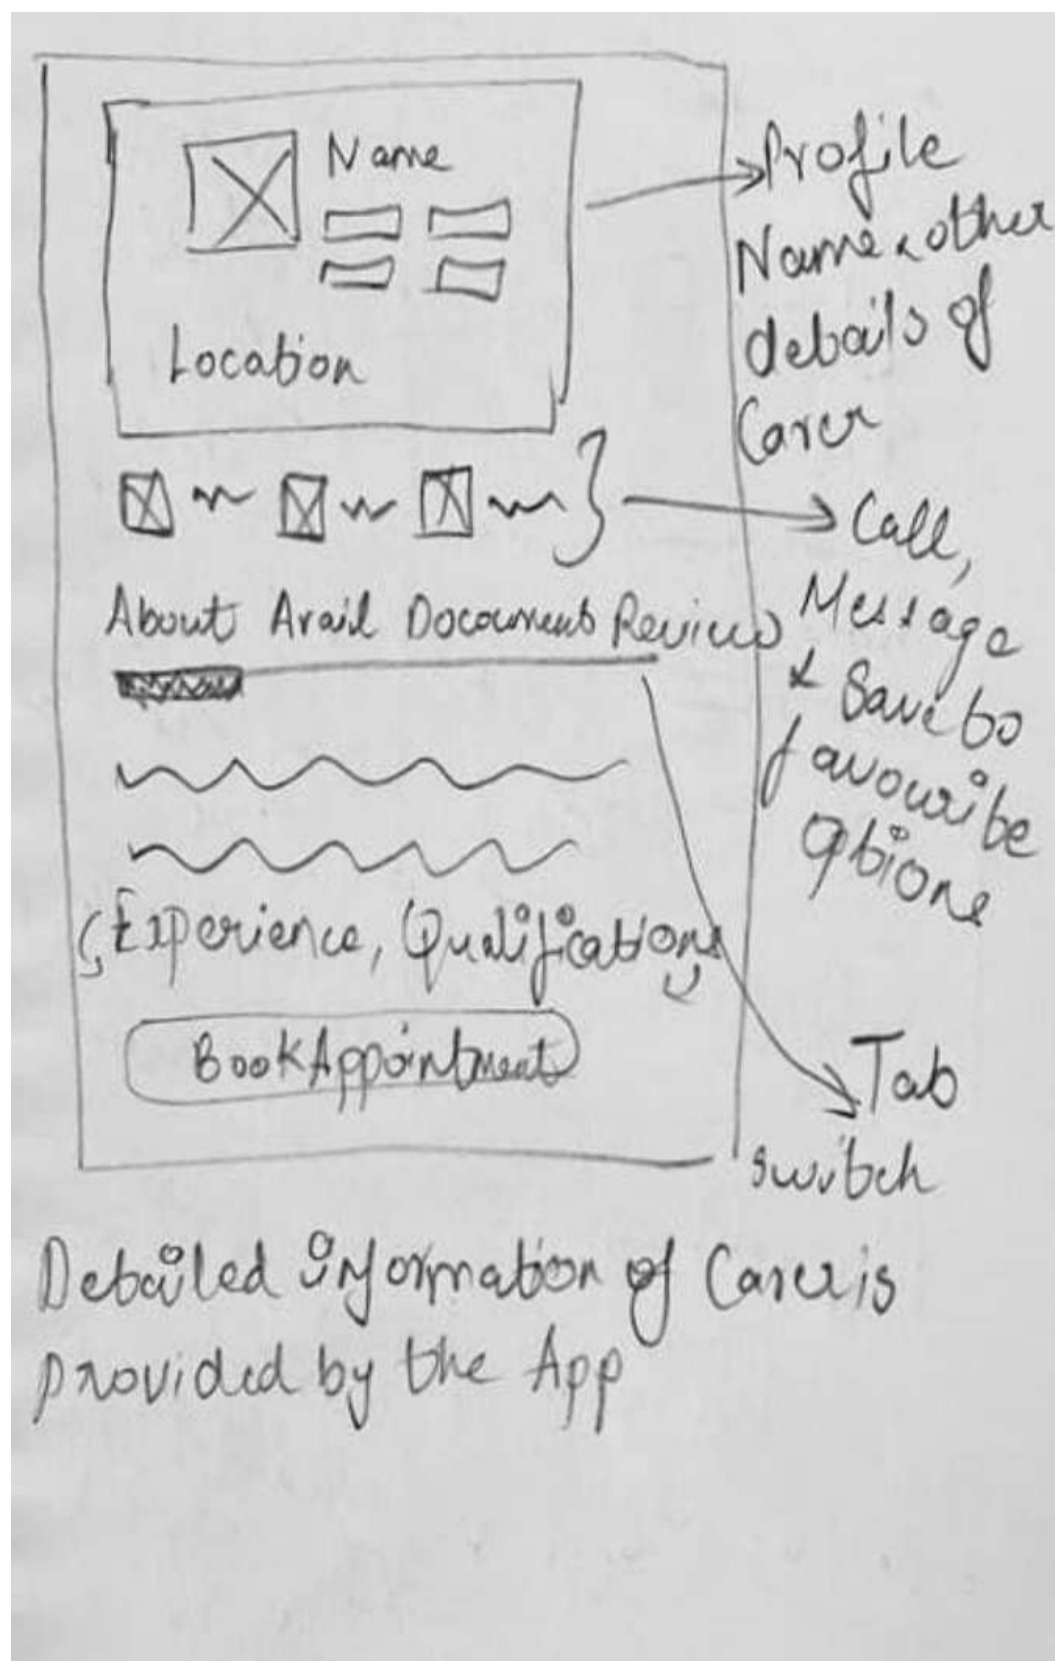 Name
Location
About Avail Documents Reviews
Experience, Qualifications
Book Appointment
Profile
Name & other
details of
Carer
Call,
Message
& Save to
favourite
options
Tab
switch
Detailed information of Carer is
provided by the App